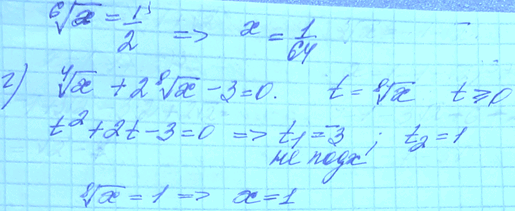 ⁶√x = 1/2 => x = 1/64
г) ⁴√x + 2⁸√x - 3 = 0. t = ⁸√x t ⩾ 0
t² + 2t - 3 = 0 => t₁ = -3 ; t₂ = 1
не подх
⁸√x = 1 => x = 1